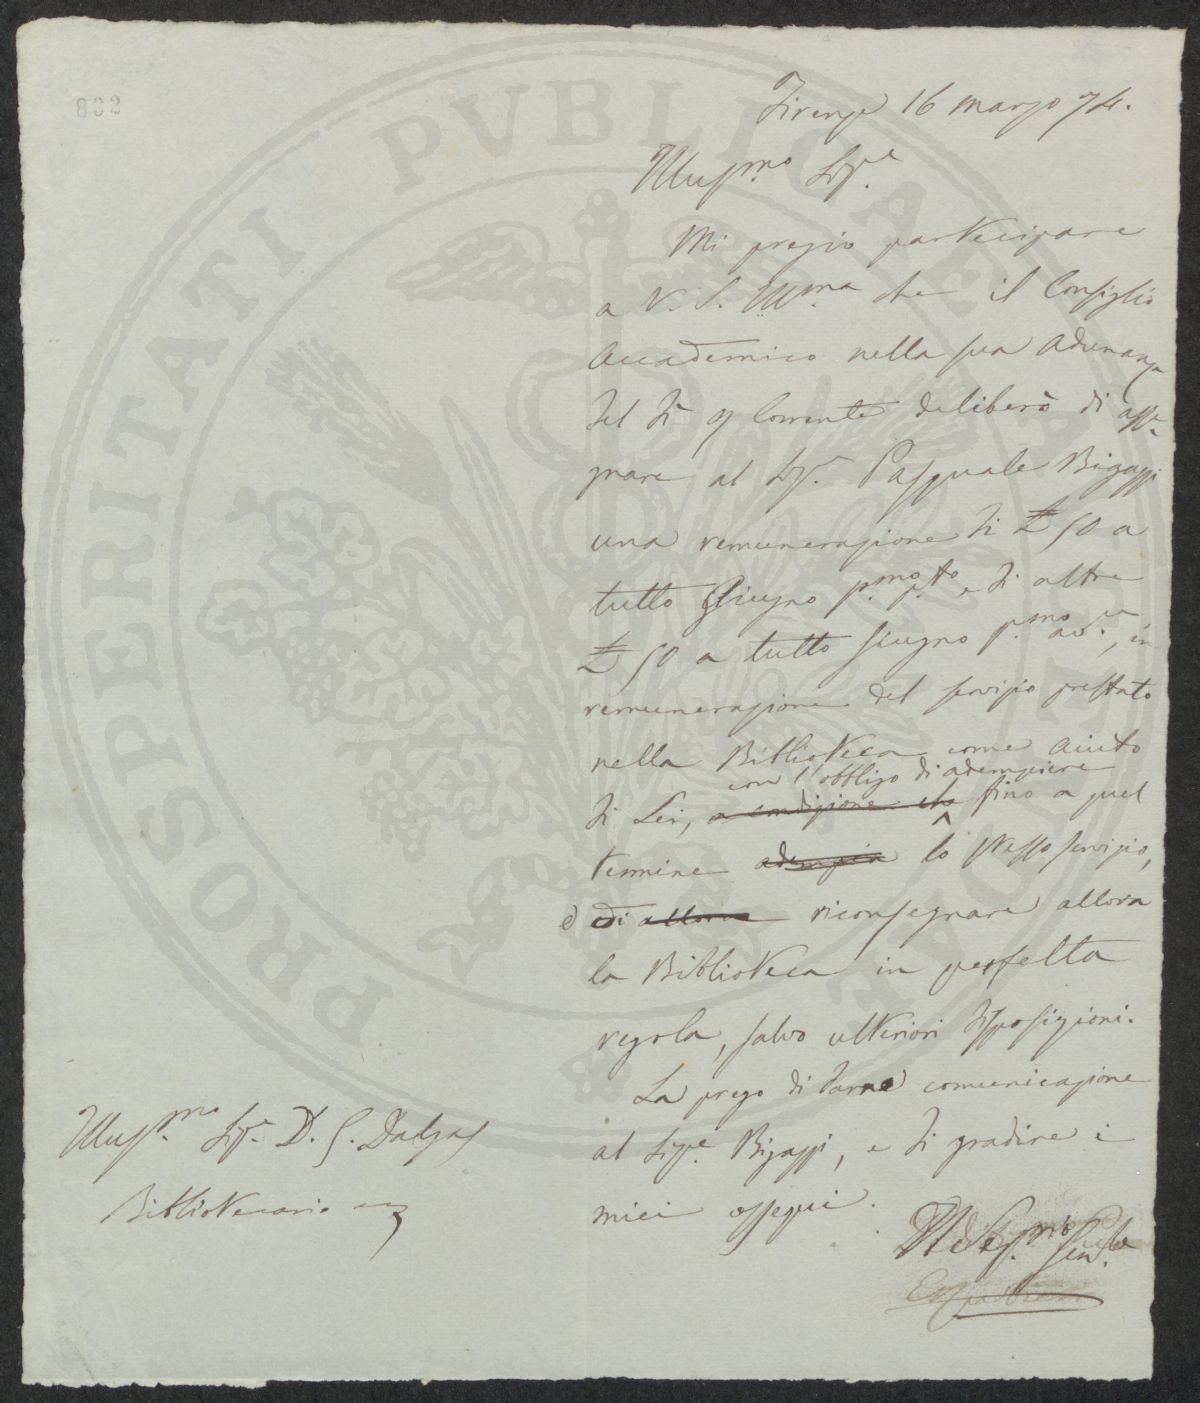 832
PROSPERITATI PVBLICAE
Firenze 16 marzo 74.
Illus.mo Sig.e
Mi pregio partecipare
a V. S. Ill.ma che il Consiglio
Accademico nella sua adunanza
del dì 9 corrente deliberò di asse-
gnare al Sig.r Pasquale Bigazzi
una remunerazione di £ 50 a
tutto Giugno p.mo p.to e di altre
£ 50 a tutto Giugno p.mo av.re, in
remunerazione del servizio prestato
nella Biblioteca come aiuto
con l'obbligo di adempiere
di Lei, a condizione che fino a quel
termine adempia lo stesso servizio,
e di allora riconsegnare allora
la Biblioteca in perfetta
regola, salvo ulteriori disposizioni.
La prego di darne comunicazione
al Sig.e Bigazzi, e di gradire i
miei ossequi.
Illus.mo Sig.r D. G. Dalgas
Bibliotecario